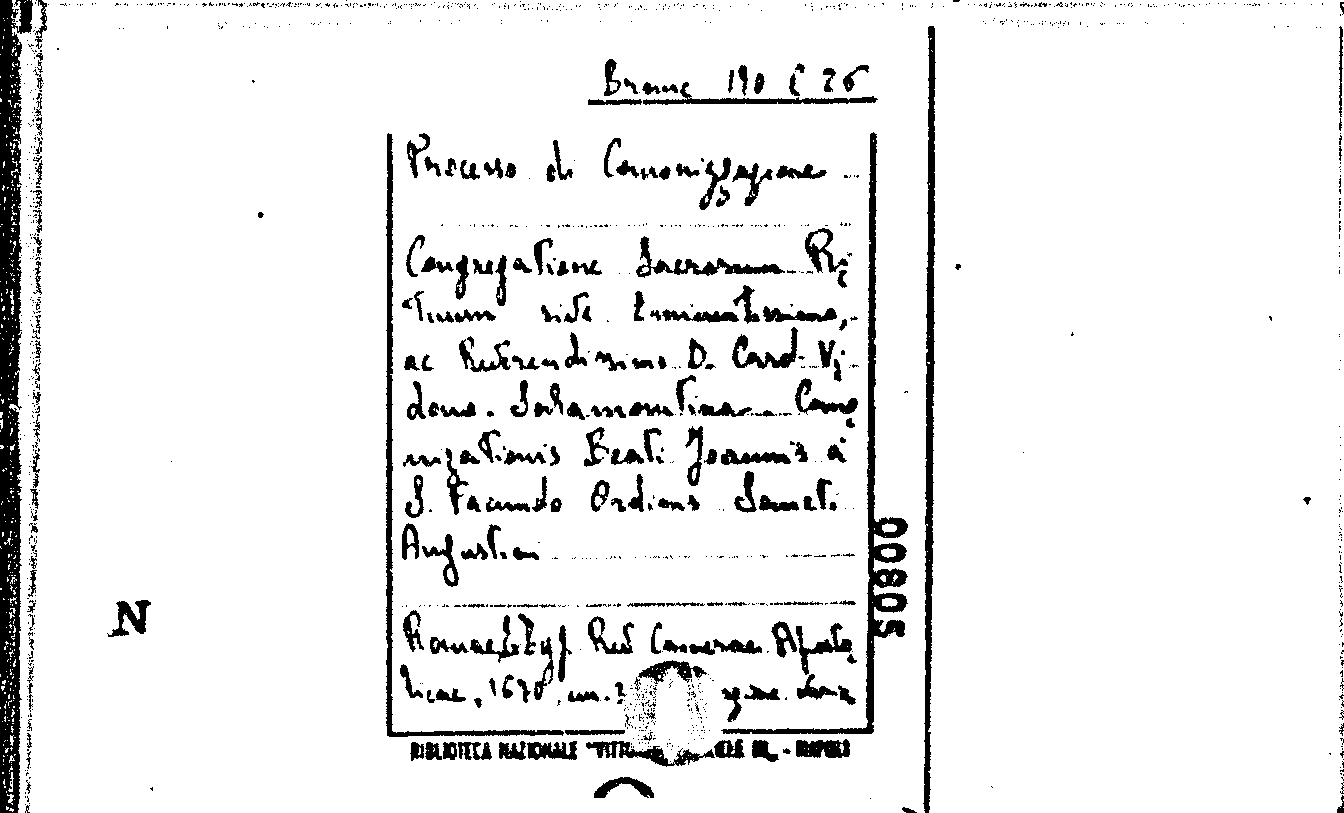 190 C 26
Processo di Canonizzazione
Congregatione Sacrorum Ri
tuum sive Eminentissimo,
ac Reverendissimo D. Card. Vi
dono. Salamantina Cano
nizationis Beati Joannis a
S. Facundo Ordinis Sancti
Augustini
Romae, Typ. Rev. Camerae Aposto
licae, 1670, in.
00805
N
BIBLIOTECA NAZIONALE - NAPOLI